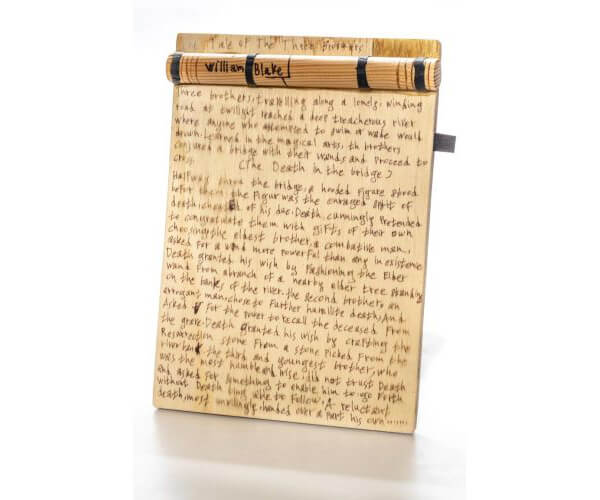 Tale of The Three Brothers
William Blake
Three brothers, travelling along a lonely, winding
road at twilight reached a deep treacherous river
where anyone who attempted to swim or wade would
drown. Learned in the magical arts, th brothers
conjured a bridge with their wands and proceed to
cross.
(The Death in the bridge)
Halfway the bridge, a hooded figure stood
before them. the Figur was the enraged spirit of
death, of his due. Death, cunningly pretended
to congratulate them with gifts of their own
choosing, the eldest brother, a combative man,
asked for a wand more powerful than any in existence
Death granted his wish by Fashioning the Elder
wand From a branch of a nearby elder tree standing
on the banks of the river. the second brother, an
arrogant man, chose to Further humilite death, And
asked for the power to recall the deceased From
the grave. Death granted his wish by crafting the
Resurrection stone From a stone Picked From the
river bank. the third and youngest brother, who
was the most humble and wise, did not trust Death
and asked for something to enable him to go Forth
without Death being able to Follow. A reluctant
death, most unwillingly, handed over a part his own